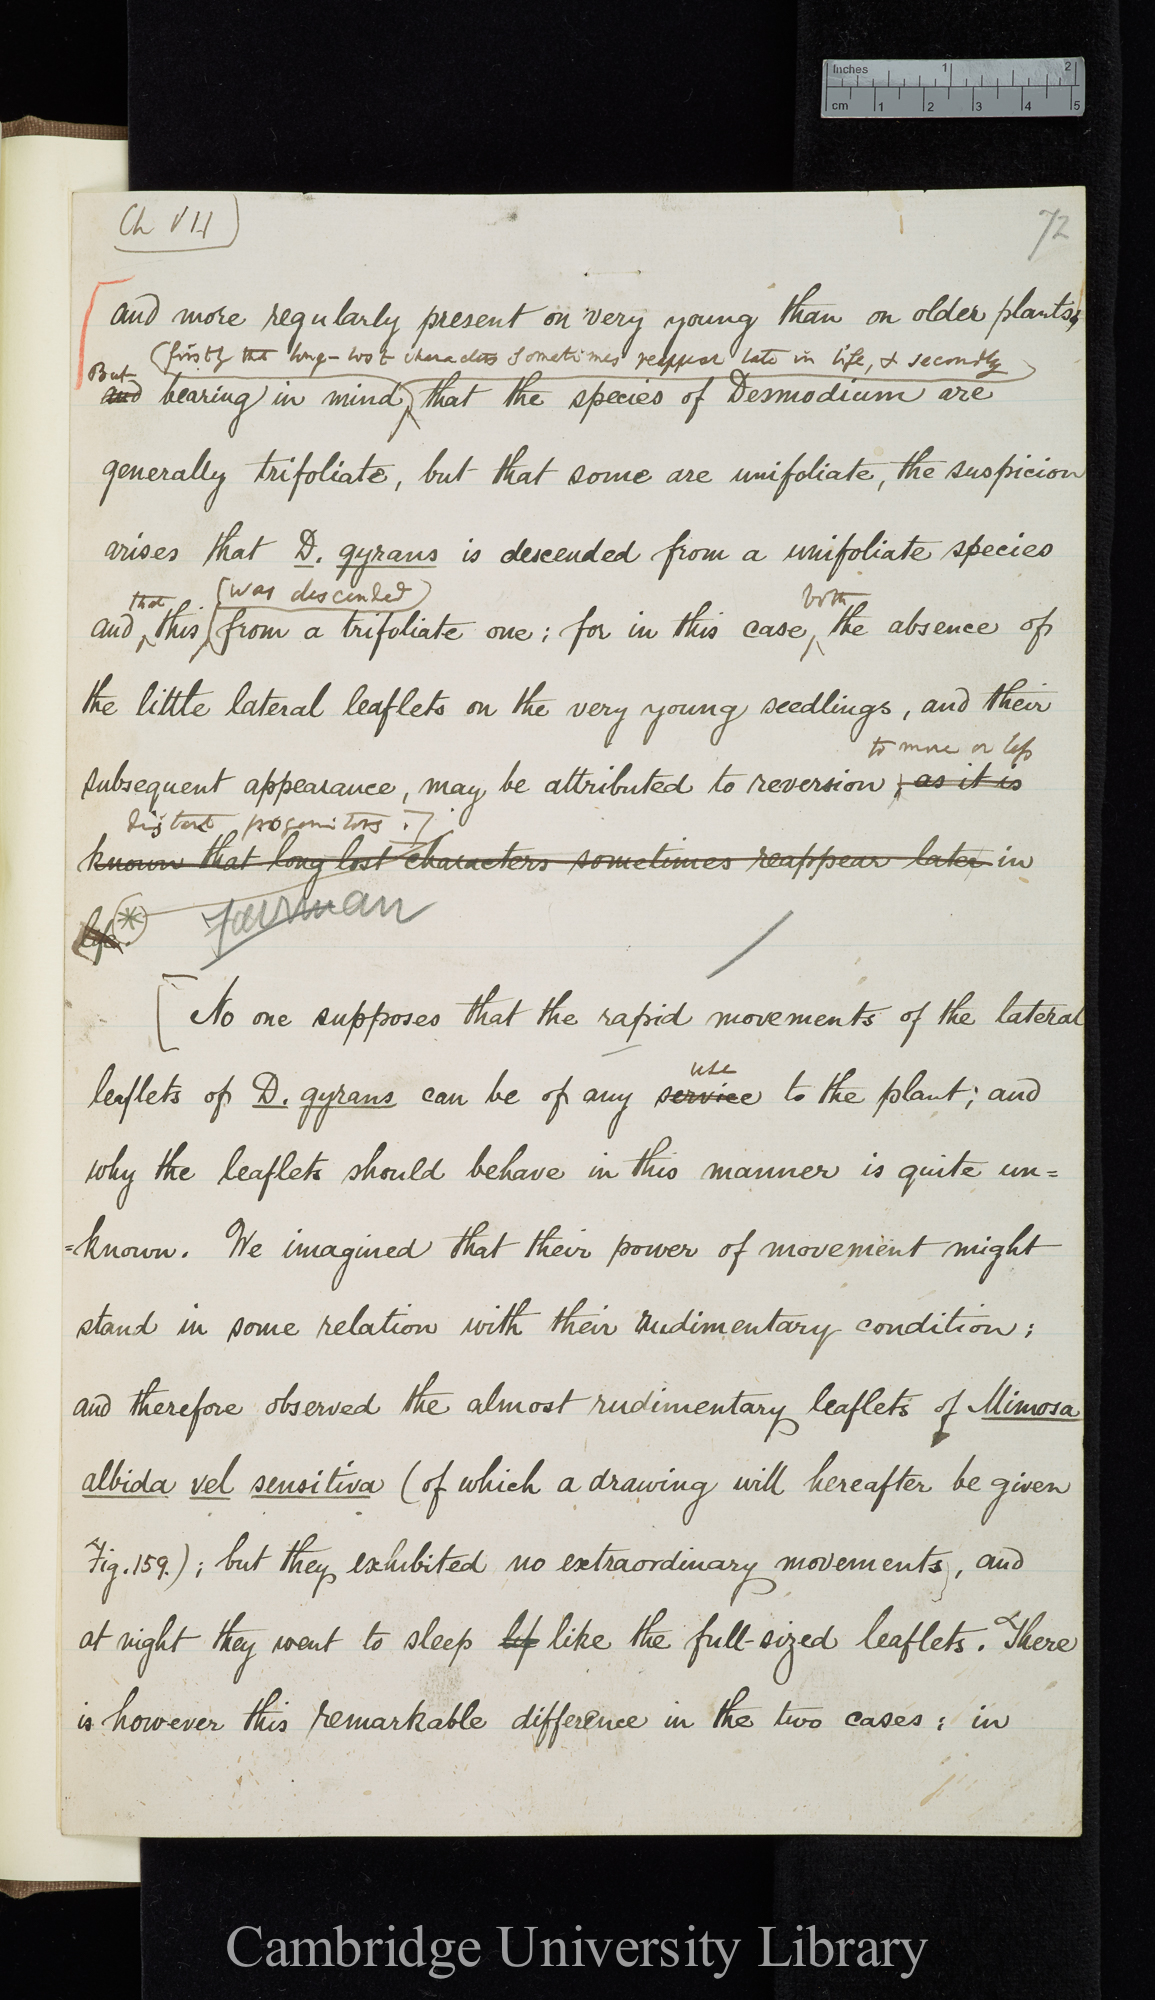 Inches 1 2
cm 1 2 3 4 5
Ch VII
72
and more regularly present on very young than on older plants.
(firstly that long-lost characters sometimes reappear late in life, & secondly
But
and bearing in mind, that the species of Desmodium are
generally trifoliate, but that some are unifoliate, the suspicion
arises that D. gyrans is descended from a unifoliate species
that (was descended) both
and this from a trifoliate one; for in this case, the absence of
the little lateral leaflets on the very young seedlings, and their
to more or less
subsequent appearance, may be attributed to reversion, as it is
distant progenitors.]
known that long lost characters sometimes reappear later in
life.*
[No one supposes that the rapid movements of the lateral
use
leaflets of D. gyrans can be of any service to the plant; and
why the leaflets should behave in this manner is quite un=
=known. We imagined that their power of movement might
stand in some relation with their rudimentary condition;
and therefore observed the almost rudimentary leaflets of Mimosa
albida vel sensitiva (of which a drawing will hereafter be given
Fig. 159.); but they exhibited no extraordinary movements, and
at night they went to sleep like the full-sized leaflets. There
is however this remarkable difference in the two cases; in
Cambridge University Library